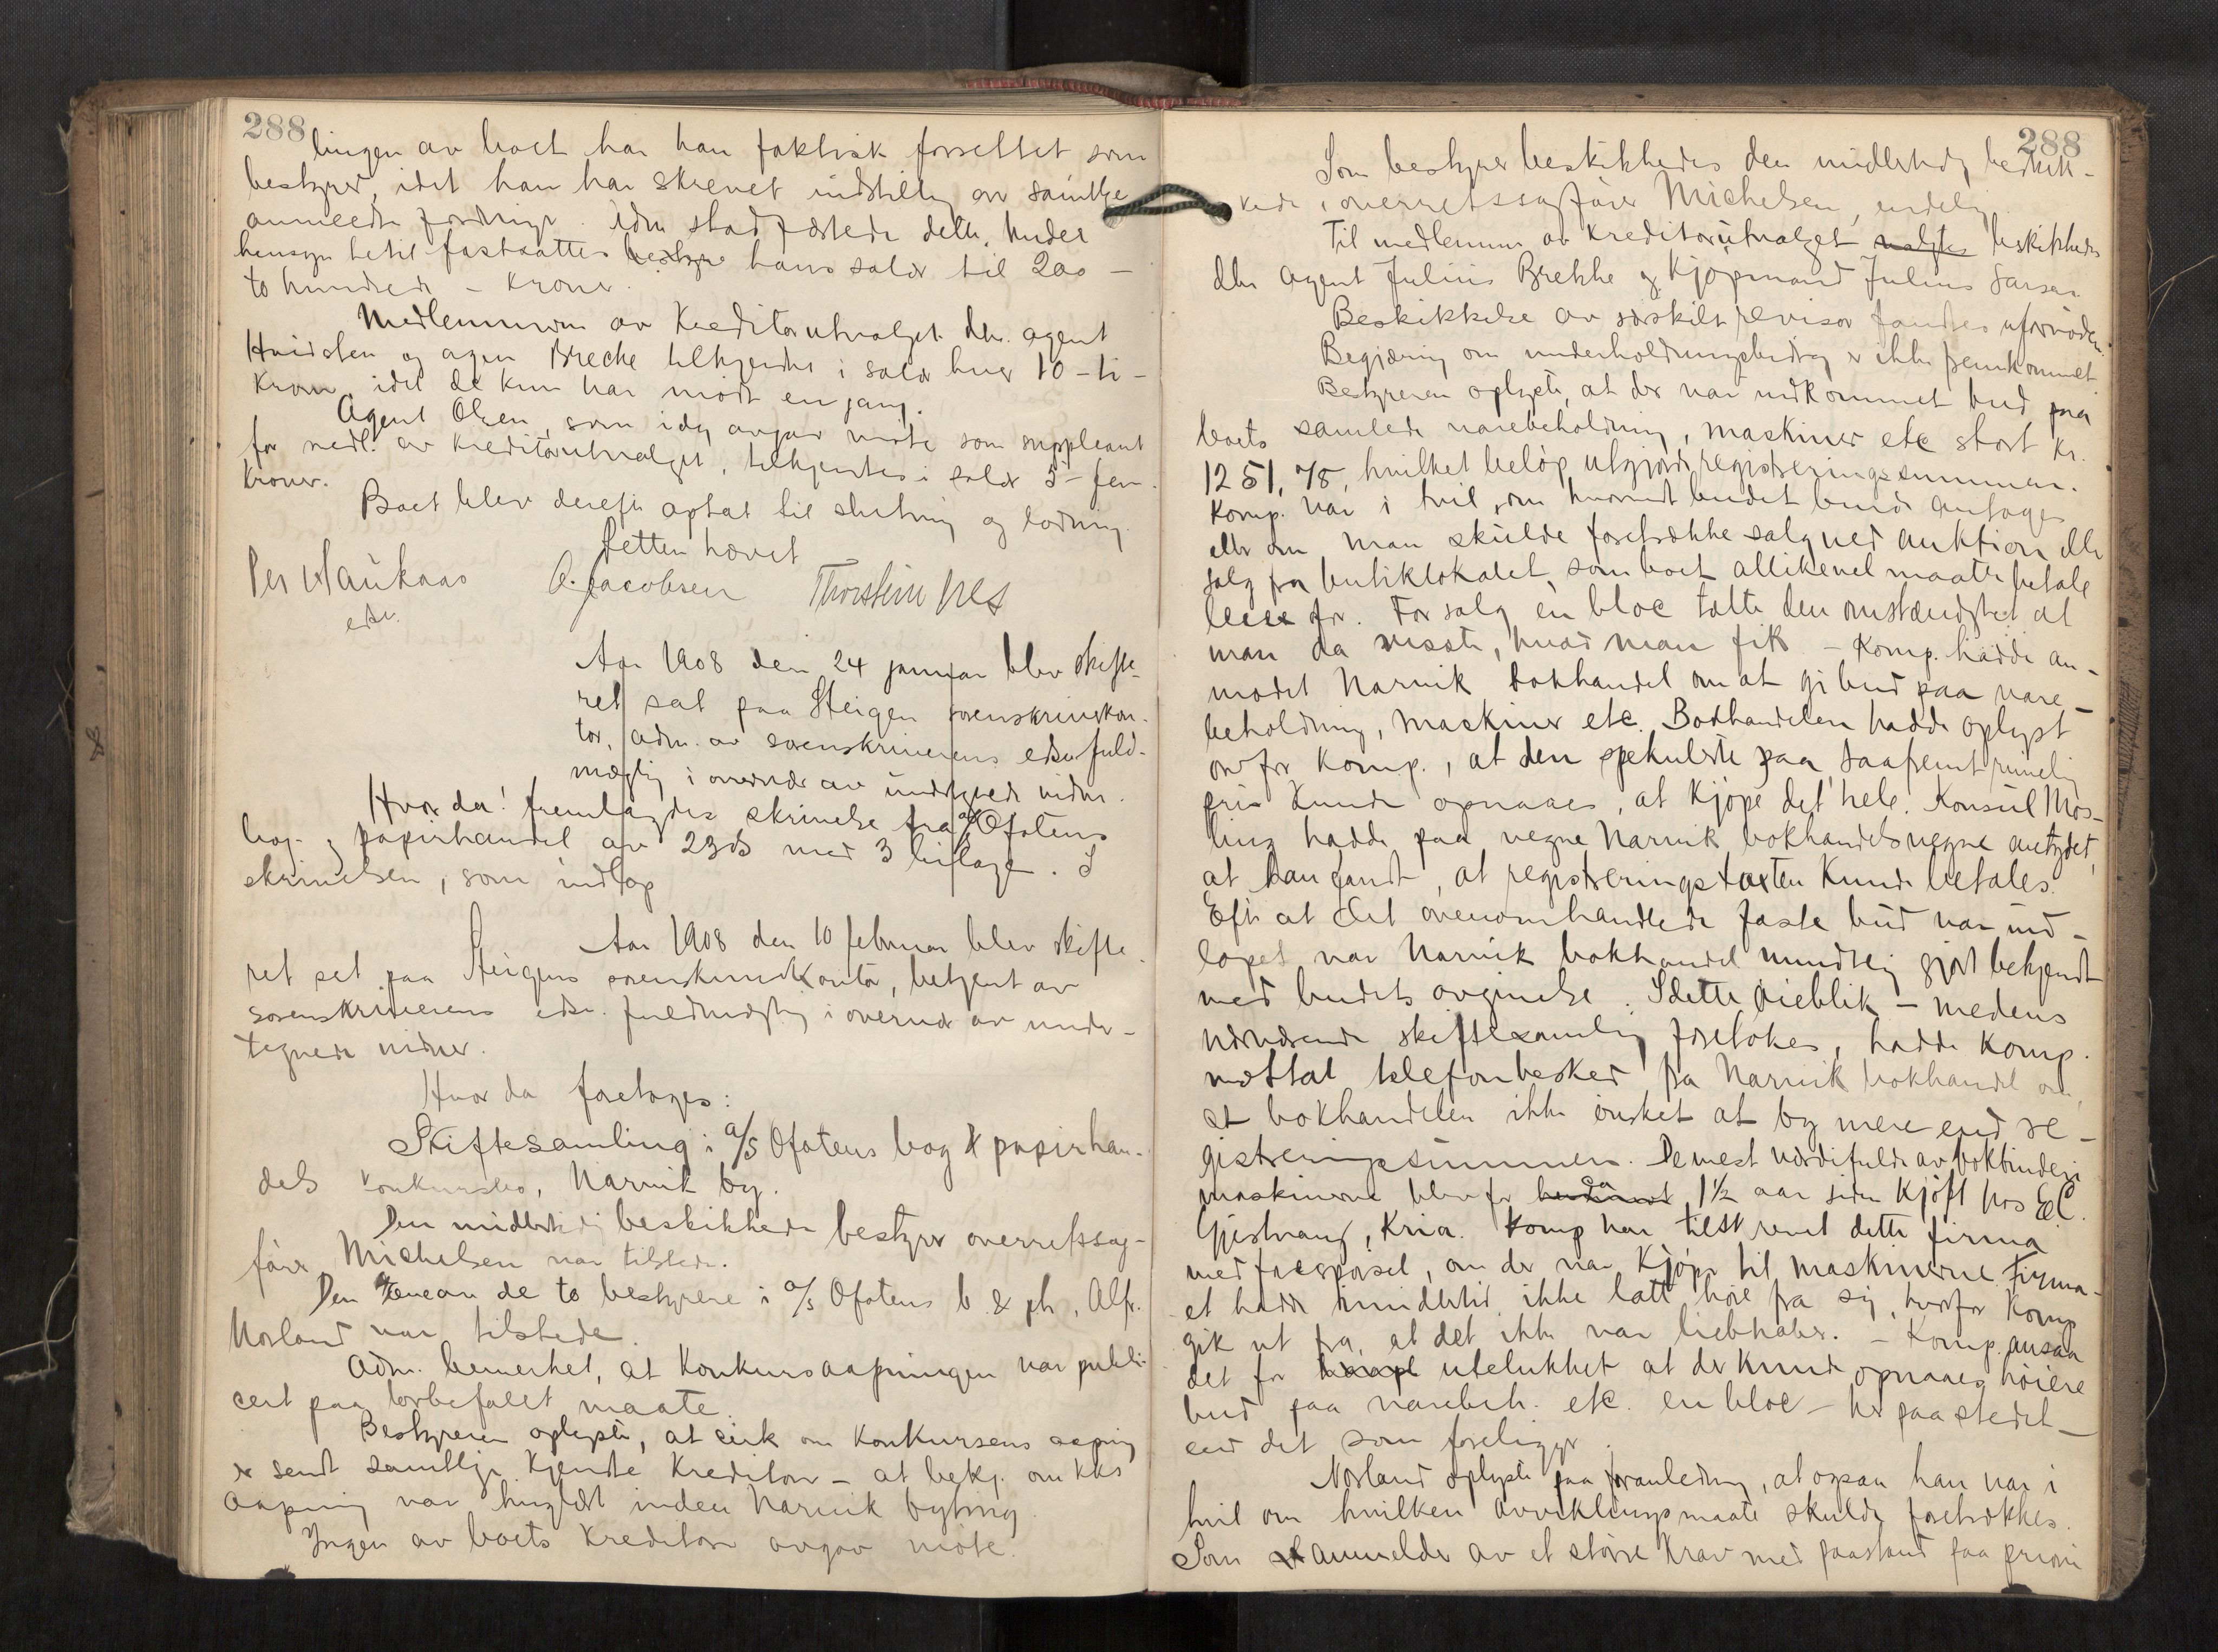 288
lingen av boet har han faktisk forsettet som
bestyrer, idet han har skrevet indstilling av samtlige
anmeldte fordringer. Adm. stadfæstede dette. Under
hensyn hertil fastsattes bestyre hans salær til 200 –
to hundrede – kroner.
Medlemmerne av Kreditorutvalget dhr. agent
Hvidsten og agen Brecke tilkjendtes i salær hver 10 – ti –
kroner, idet de kun har mødt en gang.
Agent Olsen, som idag avgav møte som suppleant
for medl. av kreditorutvalget, tilkjentes i salær 5 – fem
kroner.
Boet blev derefter optat til slutning og lodning.
Retten hævet
Per Haukaas A. Jacobsen Thorstein Nes
edsv.
Aar 1908 den 24 januar blev skifte-
ret sat paa Steigen sorenskriverkon-
tor, adm. av sorenskriverens edsv fuld-
mægtig i overvær av undertegnede vidner.
Hvor da! fremlagdes skrivelse fra a/s Ofotens
bog- og papirhandel av 23ds med 3 bilage. I
skrivelsen, som indtog
Aar 1908 den 10 februar blev skifte
ret sat paa Steigens sorenskriverkontor, betjent av
sorenskriverens edsv. fuldmægtig i overvær av under-
tegnede vidner.
Hvor da foretoges:
Skiftesamling i a/s Ofotens bog & papirhan-
dels konkursbo, Narvik by.
Den midlertidig beskikkede bestyrer overretssag-
fører Michelsen var tilstede.
Den ene av de to bestyrere i a/s Ofotens b. & ph., Alfr.
Norland var tilstede.
Adm. bemerket, at konkursaapningen var publi-
cert paa lovbefalet maate.
Bestyreren oplyste, at cirk om konkursens aapning
er sendt samtlige kjendte kreditorer – at bekj. om kks
aapning var kundgjort inden Narvik bytling.
Ingen av boets kreditorer avgav møte.
288
Som bestyrer beskikkedes den midlertidig beskik-
kede, overretssagfører Michelsen, endelig.
Til medlemmer av kreditorutvalget valgtes beskikkedes
dhr agent Julius Brekke og kjøpmand Julius Larsen
Beskikkelse av særskilt revisor fandtes ufornøden.
Begjæring om underholdningsbidrag er ikke fremkommet
Bestyreren oplyste, at der var indkommet bud paa
boets samlede varebeholdning, maskiner etc stort kr.
1251,75, hvilket beløp utgjorde registreringssummen.
Komp. var i tvil, om hvorvidt budet burde antages
eller om man skulde foretrække salg ved auktion eller
salg fra butiklokalet, som boet allikevel maatte betale
leie for. For salg en bloc talte den omstændighet at
man da visste, hvad man fik – Komp. hadde an-
modet Narvik bokhandel om at gi bud paa vare-
beholdning, maskiner etc. Bokhandelen hadde oplyst
overfor komp., at den spekulerte paa, saafremt rimelig
pris kunde opnaaes, at kjøpe det hele. Konsul Mos-
ling hadde paa vegne Narvik bokhandels vegne antydet,
at han fandt, at registreringstaxten kunde betales.
Efter at det ovenomhandlede faste bud var ind-
løpet var Narvik bokhandel mundtlig gjort bekjendt
med budets avgivelse. I dette øieblik – medens
nærværende skiftesamling foretokes, hadde komp.
mottat telefonbesked fra Narvik bokhandel om,
at bokhandelen ikke ønsket at by mere end re-
gistreringssummen. De mest værdifulde av bokbinderi
maskinerne blev for ca 1½ aar siden kjøpt hos E.C.
Gjestvang, Kria. Komp har tilskrevet dette firma
med forespørsel, om der var kjøper til maskinerne. Firma-
et hadde imidlertid ikke latt høre fra sig, hvorfor komp
gik ut fra, at det ikke var liebhaber. – Komp. ansaa
det for utelukket at der kunde opnaaes høiere
bud paa varebeh. etc. en bloc – her paa stedet –
end det som foreligger.
Norland oplyste paa foranledning, at ogsaa han var i
tvil om hvilken avviklingsmaate skulde foretrækkes.
Som anmelder av et større krav med paastand paa priori